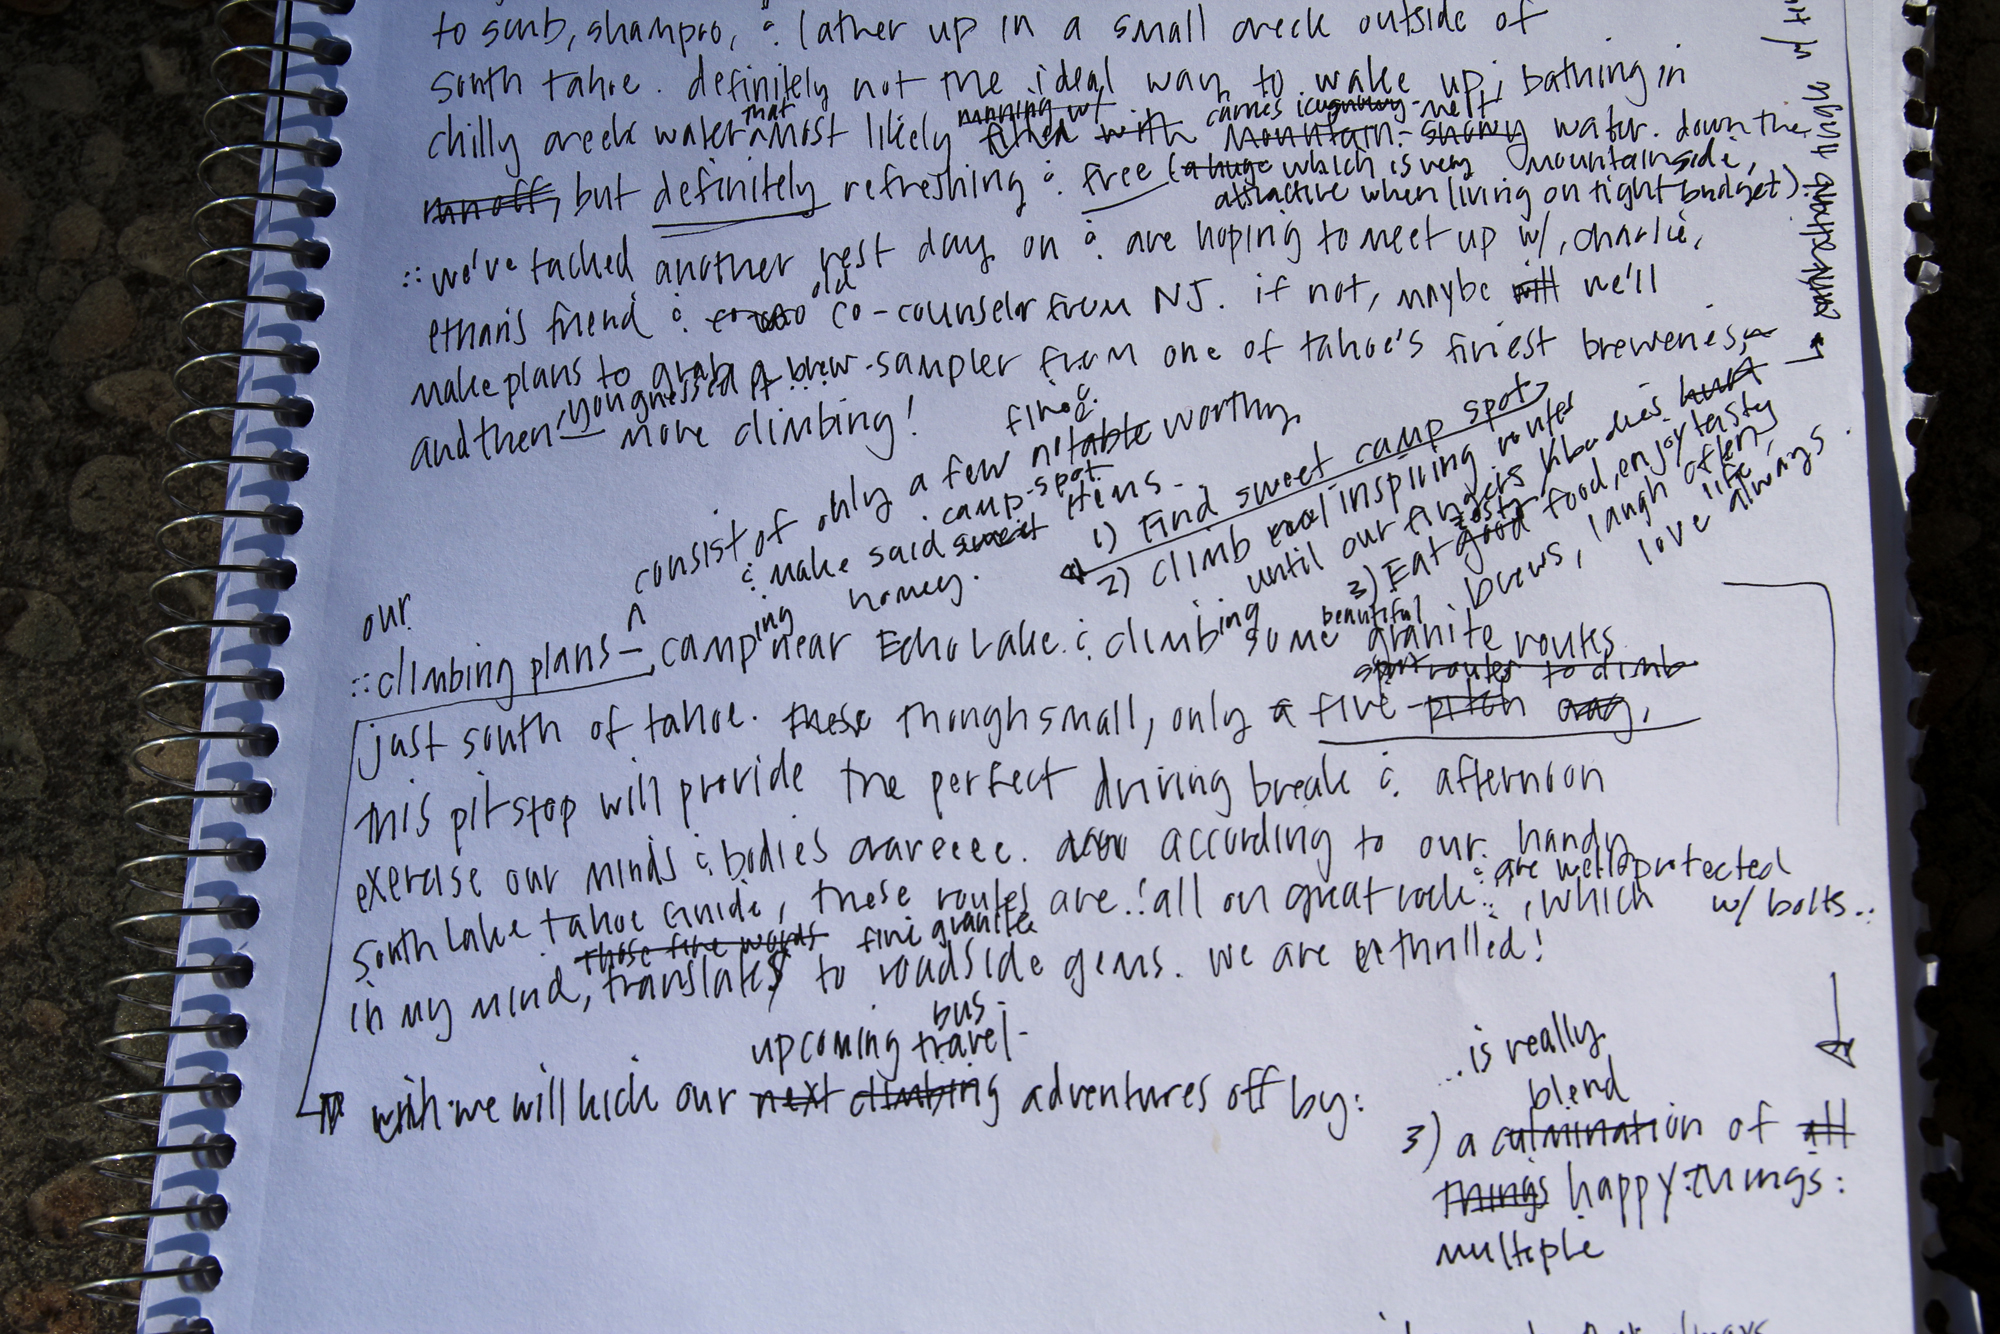 to scrub, shampoo, & lather up in a small creek outside of
south tahoe. definitely not the ideal way to wake up; bathing in
that running w/ carries icy melt
chilly creek water most likely filled with mountain-snowy water. down the
mountainside,
runoff, but definitely refreshing & free (a huge which is very
attractive when living on tight budget).
:: we've tacked another rest day on & are hoping to meet up w/, charlie,
old
ethan's friend & co-counselor from NJ. if not, maybe will we'll
make plans to grab a brew-sampler from one of tahoe's finest breweries,
and then more climbing!
five
consist of only a few notable worthy
camp-spot items.
& make said sweet
homey.
1) Find sweet camp spot
2) climb cool inspiring routes
until our fingers & bodies hurt
3) Eat good tasty food, enjoy tasty
brews, laugh often,
life,
love always
our
:: climbing plans – camping near Echo Lake & climbing some beautiful granite routes
sport routes to climb
just south of tahoe. these though small, only a five-pitch
this pitstop will provide the perfect driving break & afternoon
exercise our minds & bodies craveeee. according to our handy
South Lake Tahoe Guide, these routes are: "all on great rock", which are well protected
w/ bolts.
those five words fine granite
in my mind, translates to roadside gems. we are enthrilled!
bus
upcoming travel-
with we will kick our next climbing adventures off by:
...is really
blend
3) a culmination of all
things happy things:
multiple